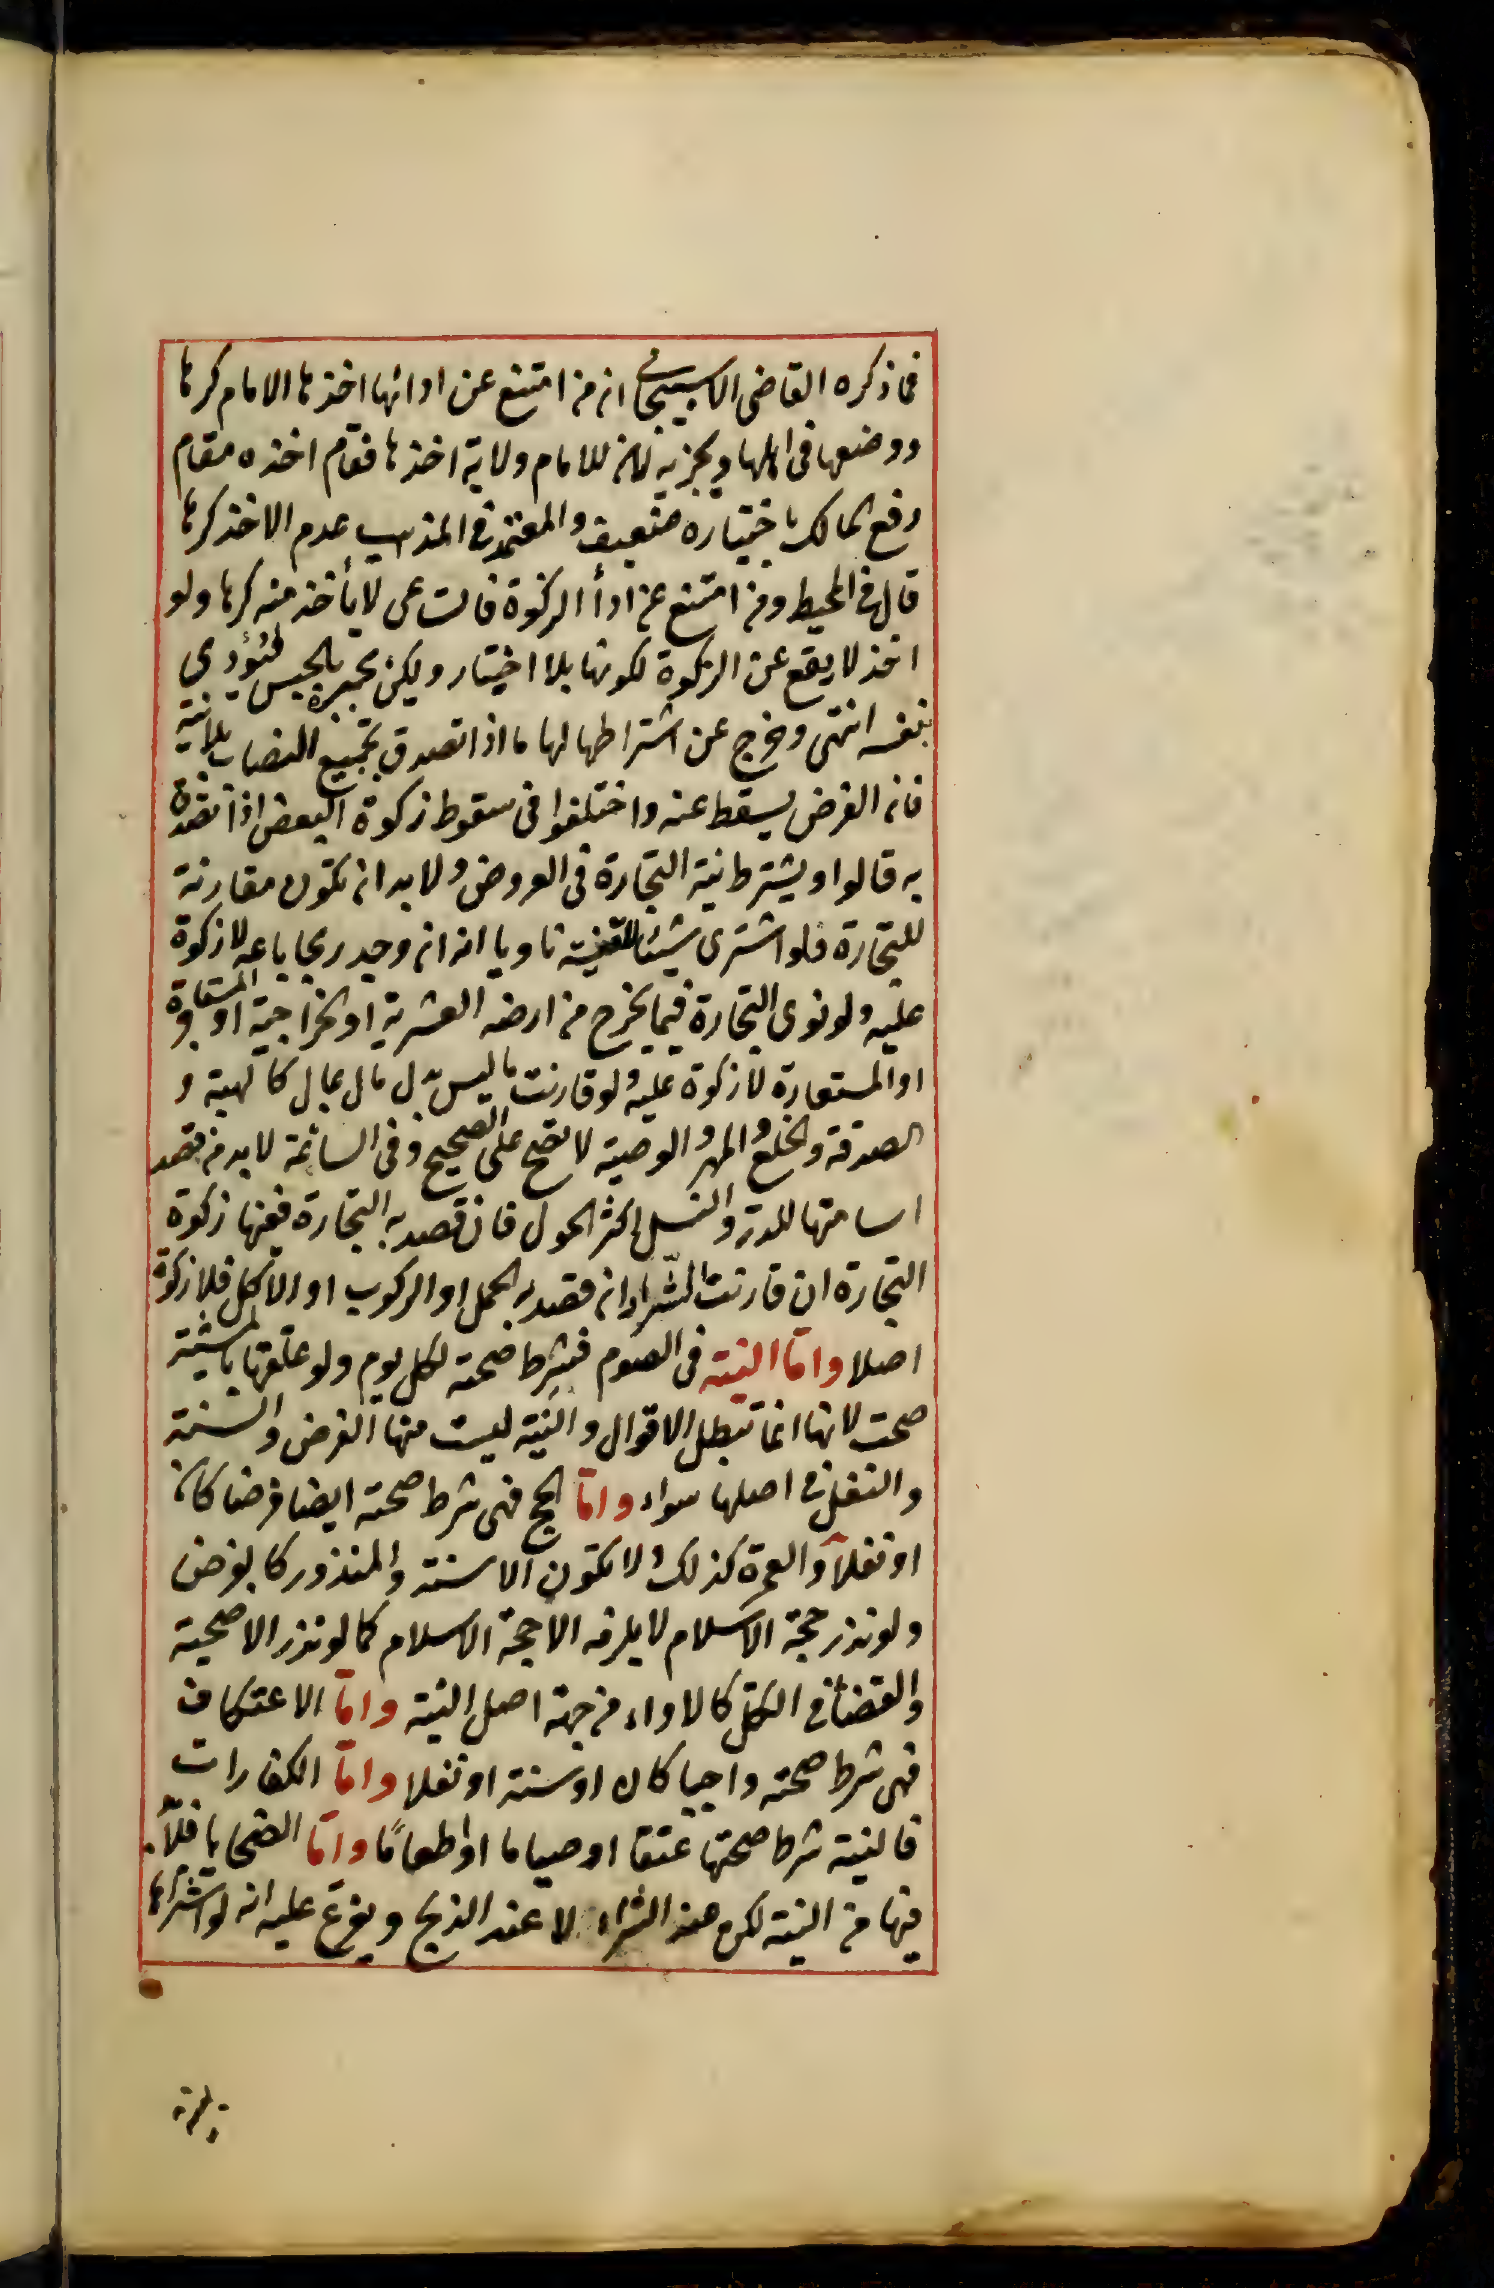 فما ذكره القاضى الاسبيجابى ان من امتنع عن ادائها اخذها الامام كرها
ووضعها فى اهلها ويجزيه لان للامام ولاية اخذها فقام اخذه مقام
دفع المالك باختياره ضعيف والمعتمد فى المذهب عدم الاخذ كرها
قال فى المحيط ومن امتنع عن اداأ الزكوة فالساعى لا يأخذ منه كرها ولو
اخذ لا يقع عن الزكوة لكونها بلا اختيار ولكن يجبره بالحبس ليؤدى
بنفسه انتهى وخرج عن اشتراطها لها ما اذا تصدق بجميع النصاب بلا نية
فان الفرض يسقط عنه واختلفوا فى سقوط زكوة البعض اذا تصدق
به قالوا ويشترط نية التجارة فى العروض ولا بد ان تكون مقارنة
للتجارة فلو اشترى شيئا للقنية ناويا انه ان وجد ربحا باعه لا زكوة
عليه ولو نوى التجارة فيما يخرج من ارضه العشرية او الخراجية او المستاجرة
او المستعارة لا زكوة عليه ولو قارنت ما ليس بدل مال بمال كالهبة و
الصدقة والخلع والمهر والوصية لا تصح على الصحيح وفى السائمة لا بد من قصد
اسامتها للدر والنسل اكثر الحول فان قصد به التجارة ففيها زكوة
التجارة ان قارنت الشراء وان قصد به الحمل او الركوب او الاكل فلا زكوة
اصلا واما النية فى الصوم فشرط صحته لكل يوم ولو علقها بالمشية
صحت لانها انما تبطل الاقوال والنية ليست منها الفرض والسنة
والنفل فى اصلها سواء واما الحج فهى شرط صحته ايضا فرضا كان
او نفلا والعمرة كذلك ولا تكون الا سنة والمنذور كالفرض
ولو نذر حجة الاسلام لا يلزمه الا حجة الاسلام كما لو نذر الاضحية
والقضاء فى الكل كالاداء من جهة اصل النية واما الاعتكاف
فهى شرط صحته واجبا كان او سنة او نفلا واما الكفارات
فالنية شرط صحتها عتقا او صياما او اطعاما واما الضحايا فلا بد
فيها من النية لكن عند الشراء لا عند الذبح ويفرع عليه انه لو اشتراها